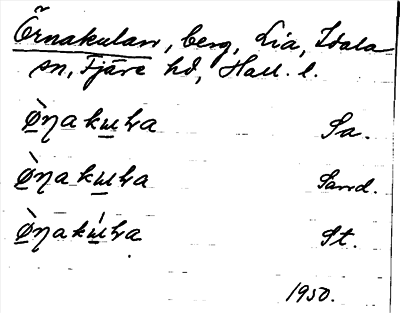 Örnakulan, berg, Lia, Idala
sn, Fjäre hd, Hall. l.
Ø̀ŋakuɫa Sa.
Ø̀ŋakuɫa Sand.
Ø̀ŋakúɫa St.
1950.